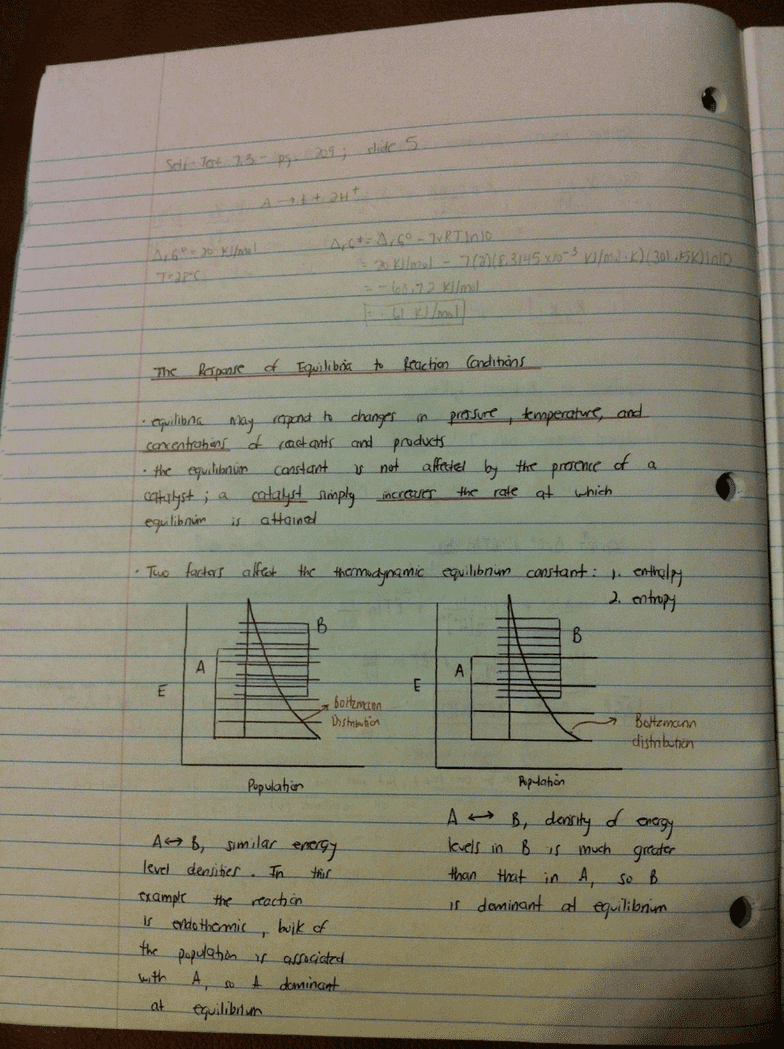 Self-Test 7.3 - pg. 209; slide 5
A → B + 2H⁺
ΔrG° = 20 kJ/mol
T = 28°C
ΔrG⊕ = ΔrG° - 7νRTln10
= 20 kJ/mol - 7(2)(8.3145 x10⁻³ kJ/mol·K)(301.15K)ln10
= -60.72 kJ/mol
= -61 kJ/mol
The Response of Equilibria to Reaction Conditions
· equilibria may respond to changes in pressure, temperature, and
concentrations of reactants and products
· the equilibrium constant is not affected by the presence of a
catalyst; a catalyst simply increases the rate at which
equilibrium is attained
· Two factors affect the thermodynamic equilibrium constant: 1. enthalpy
2. entropy
B
A
E
Boltzmann
Distribution
Population
B
A
E
Boltzmann
distribution
Population
A ↔ B, similar energy
level densities. In this
example the reaction
is endothermic, bulk of
the population is associated
with A, so A dominant
at equilibrium
A ↔ B, density of energy
levels in B is much greater
than that in A, so B
is dominant at equilibrium